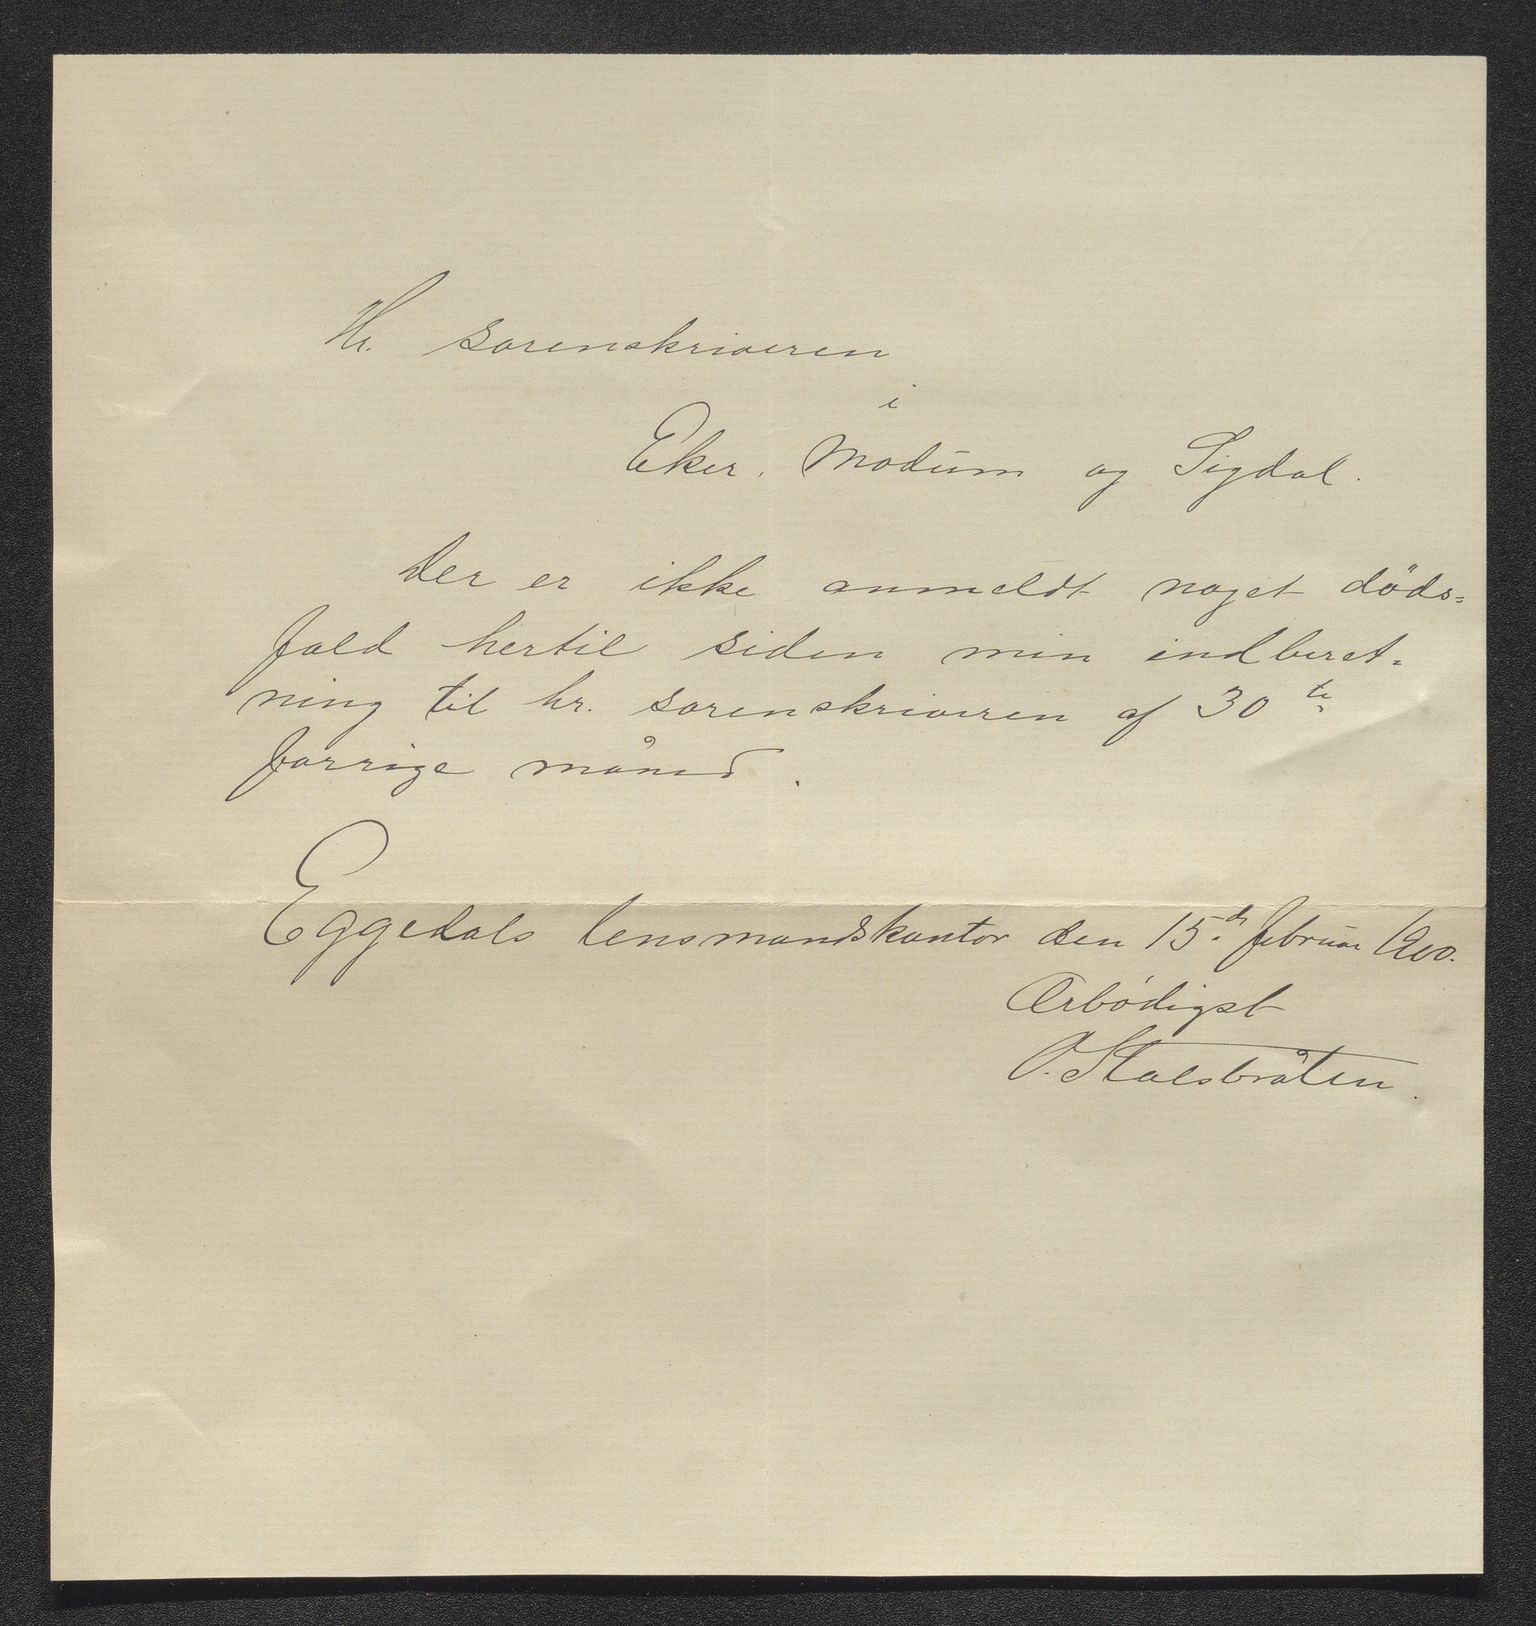 Hr. sorenskriveren
i
Eker, Modum og Sigdal.
Der er ikke anmeldt noget døds-
fald hertil siden min indberet-
ning til hr. sorenskriveren af 30te
forrige måned.
Eggedals lensmandskontor den 15.de februar 1900.
Ærbødigst
O. Stalsbråten.